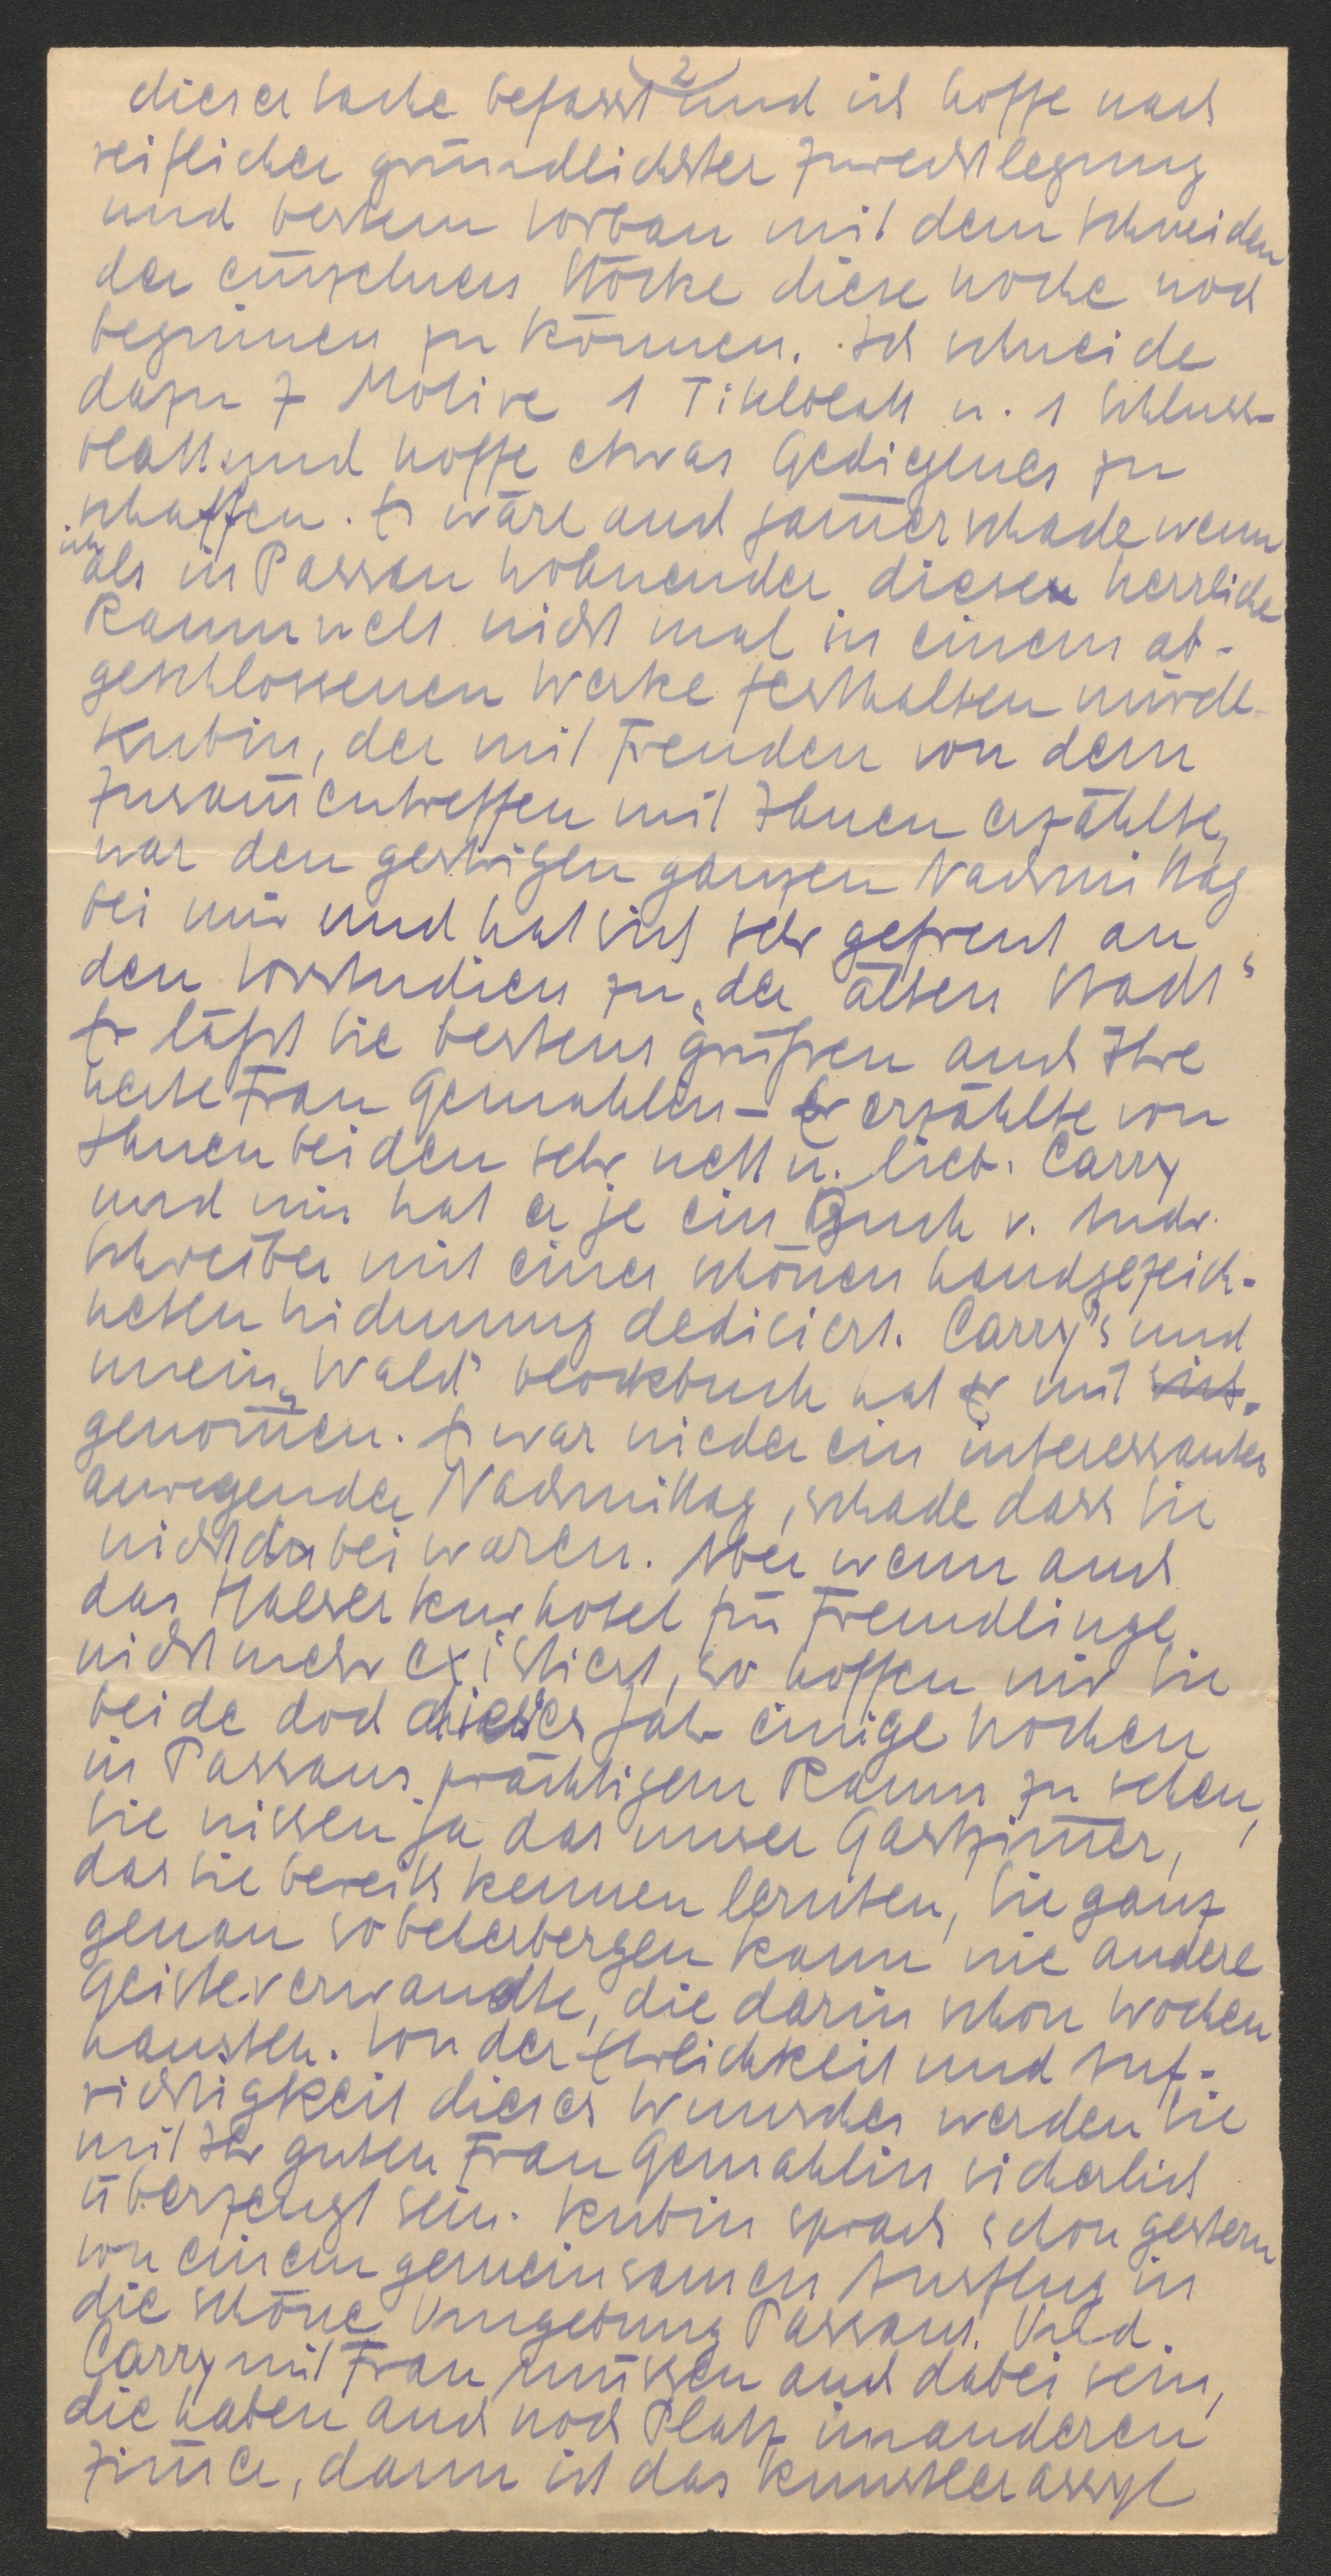 (2)
dieser Sache befasst und ich hoffe nach
reiflicher gründlichster Zurechtlegung
und bestem Vorbau mit dem Schneiden
der einzelnen Stöcke diese Woche noch
beginnen zu können. Ich schneide
dazu 7 Motive 1 Titelblatt u. 1 Schluss-
blatt und hoffe etwas Gediegenes zu
schaffen. Es wäre auch jam̄erschade wenn
ich
als in Passau Wohnender diese herrliche
Raumwelt nicht mal in einem ab-
geschlossenen Werke festhalten würde.
Kubin, der mit Freuden von dem
Zusam̄entreffen mit Ihnen erzählte,
war den gestrigen ganzen Nachmittag
bei mir und hat sich sehr gefreut an
den Vorstudien zu „der alten Stadt“
Er läßt Sie bestens grüßen auch Ihre
werte Frau Gemahlin – Er erzählte von
Ihnen beiden sehr nett u. lieb. Carry
und mir hat er je ein Buch v. Andr.
Schreiber mit einer schönen handgezeich-
neten Widmung dediciert. Carry's und
mein „Wald“ blockbuch hat Er mit
genom̄en. Es war wieder ein interessanter
anregender Nachmittag, schade dass Sie
nicht dabei waren. Aber wenn auch
das Halser Kurhotel für Fremdlinge
nicht mehr existiert, so hoffen wir Sie
beide doch dieses Jahr einige Wochen
in Passaus prächtigem Raum zu sehen,
Sie wissen ja das unser Gastzim̄er,
das Sie bereits kennen lernten, Sie ganz
genau so beherbergen kann wie andere
Geistesverwandte, die darin schon Wochen
hausten. Von der Ehrlichkeit und Auf-
richtigkeit dieses Wunsches werden Sie
mit Ihr guten Frau Gemahlin sicherlich
überzeugt sein. Kubin sprach schon gestern
von einem gemeinsamen Ausflug in
die schöne Umgebung Passaus. Und
Carry mit Frau müssen auch dabei sein,
die haben auch noch Platz im anderen
Zim̄er, dann ist das Künstlerassyl